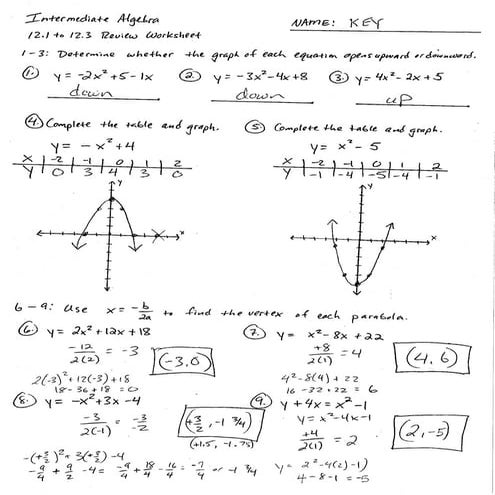 Intermediate Algebra NAME: KEY
12.1 to 12.3 Review Worksheet
1-3: Determine whether the graph of each equation opens upward or downward.
1. y = -2x² + 5 - 1x 2. y = -3x² - 4x + 8 3. y = 4x² - 2x + 5
down down up
4. Complete the table and graph. 5. Complete the table and graph.
y = -x² + 4 y = x² - 5
x | -2 | -1 | 0 | 1 | 2 x | -2 | -1 | 0 | 1 | 2
y | 0 | 3 | 4 | 3 | 0 y | -1 | -4 | -5 | -4 | -1
y y
x x
6-9: Use x = -b/2a to find the vertex of each parabola.
6. y = 2x² + 12x + 18 7. y = x² - 8x + 22
-12/2(2) = -3 (-3,0) +8/2(1) = 4 (4,6)
2(-3)² + 12(-3) + 18 4² - 8(4) + 22
18 - 36 + 18 = 0 16 - 32 + 22 = 6
8. y = -x² + 3x - 4 9. y + 4x = x² - 1
y = x² - 4x - 1
-3/2(-1) = -3/-2 (+3/2, -1 3/4) +4/2(1) = 2 (2,-5)
(+1.5, -1.75)
-(+3/2)² + 3(+3/2) - 4
-9/4 + 9/2 - 4 = -9/4 + 18/4 - 16/4 = -7/4 or -1 3/4 y = 2² - 4(2) - 1)
4 - 8 - 1 = -5